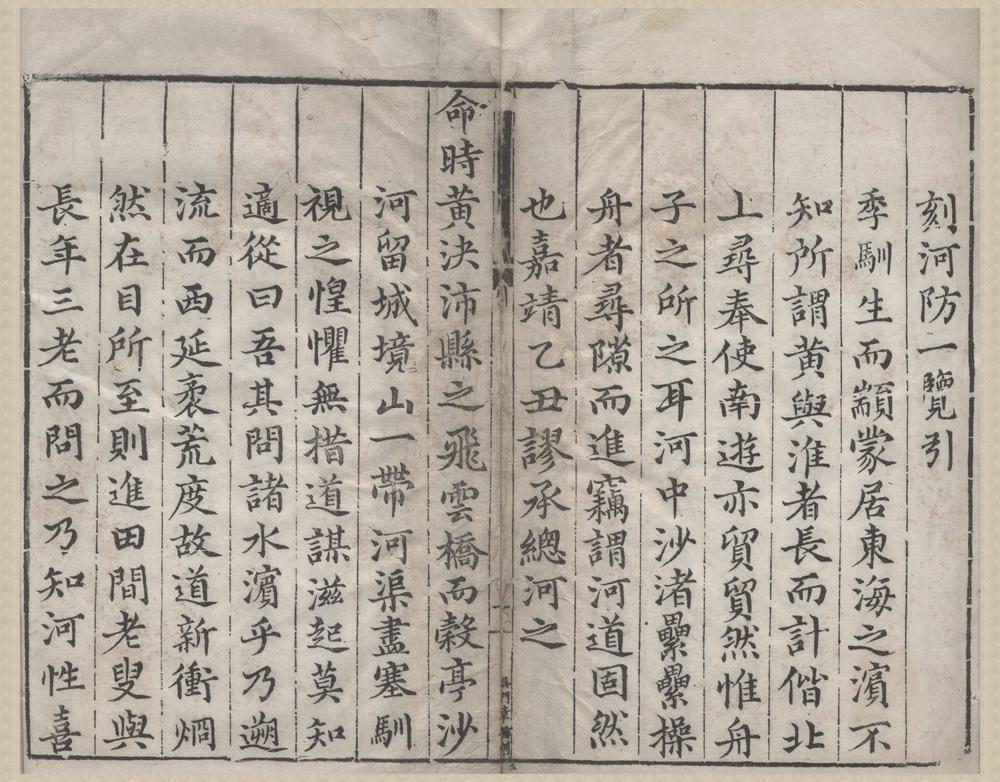 刻河防一覽引
季馴生而顓蒙居東海之濵不
知所謂黄與淮者長而計偕北
上尋奉使南遊亦貿貿然惟舟
子之所之耳河中沙渚纍纍操
舟者尋隙而進竊謂河道固然
也嘉靖乙丑謬承總河之
命時黄決沛縣之飛雲橋而穀亭沙
河留城境山一帶河渠盡塞馴
視之惶懼無措道謀滋起莫知
適從曰吾其問諸水濵乎乃遡
流而西延袤荒度故道新衝烱
然在目所至則進田間老叟與
長年三老而問之乃知河性喜